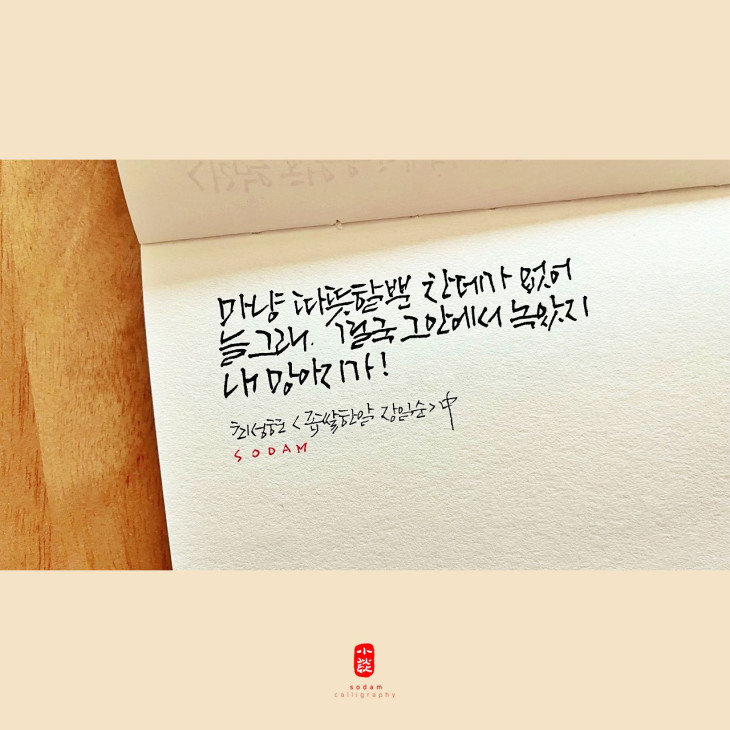 마냥 따뜻할뿐 찬데가 없어
늘 그래. 결국 그안에서 녹았지
내 망아리가!
최성현 <좁쌀한알 장일순> 中
SODAM
小
sodam
calligraphy